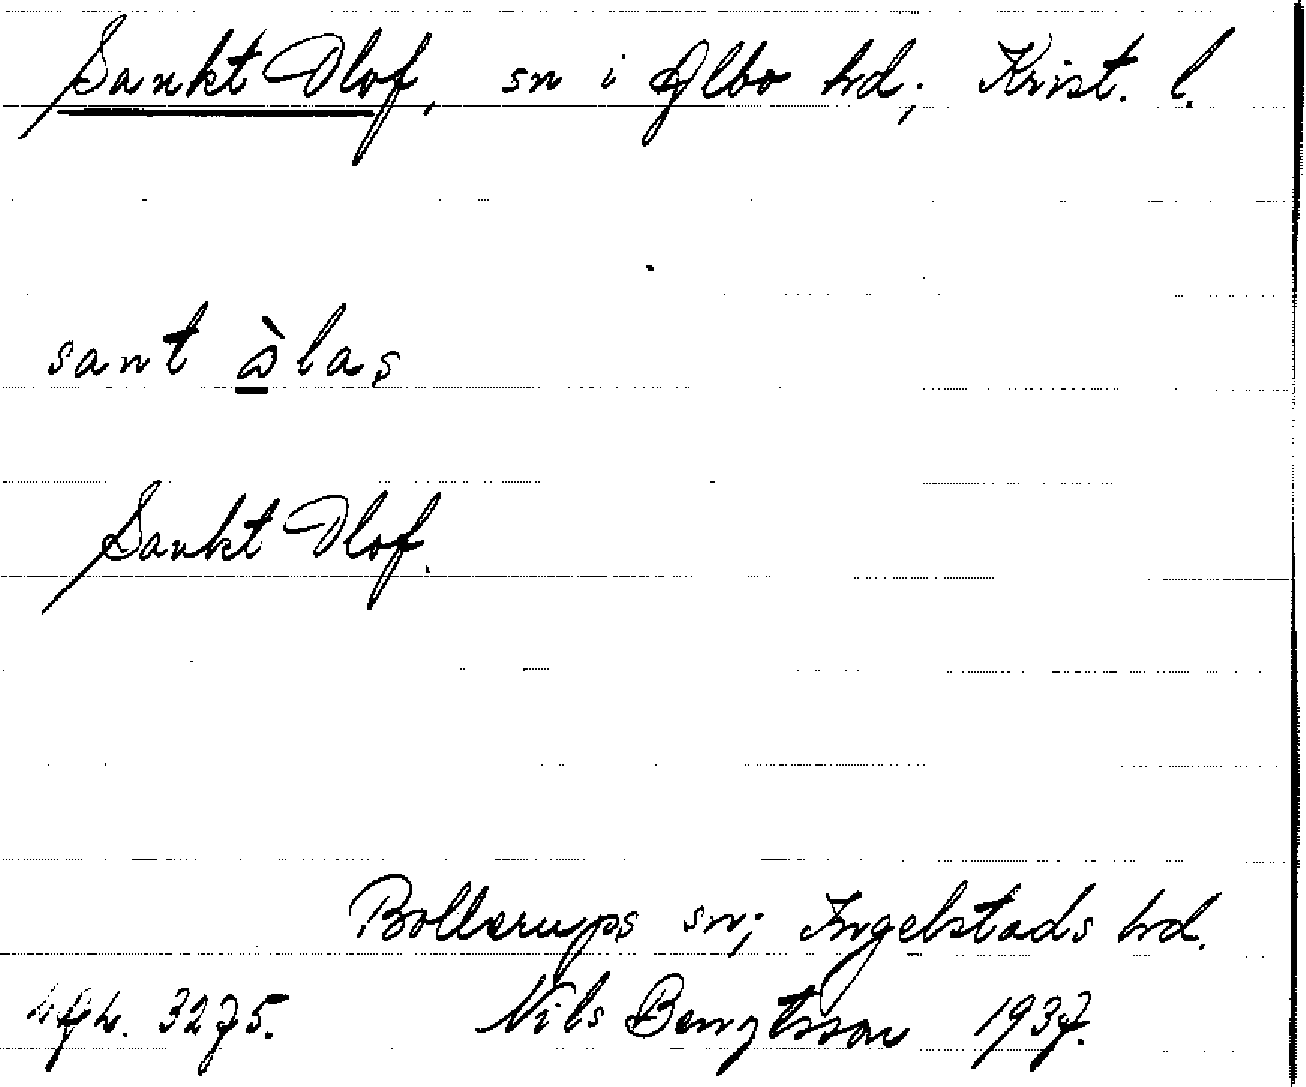 Sankt Olof, sn i Albo hrd; Krist. l.
sant
Sankt Olof.
Bollerups sn; Ingelstads hrd.
3275. Nils Bengtsson 1937.